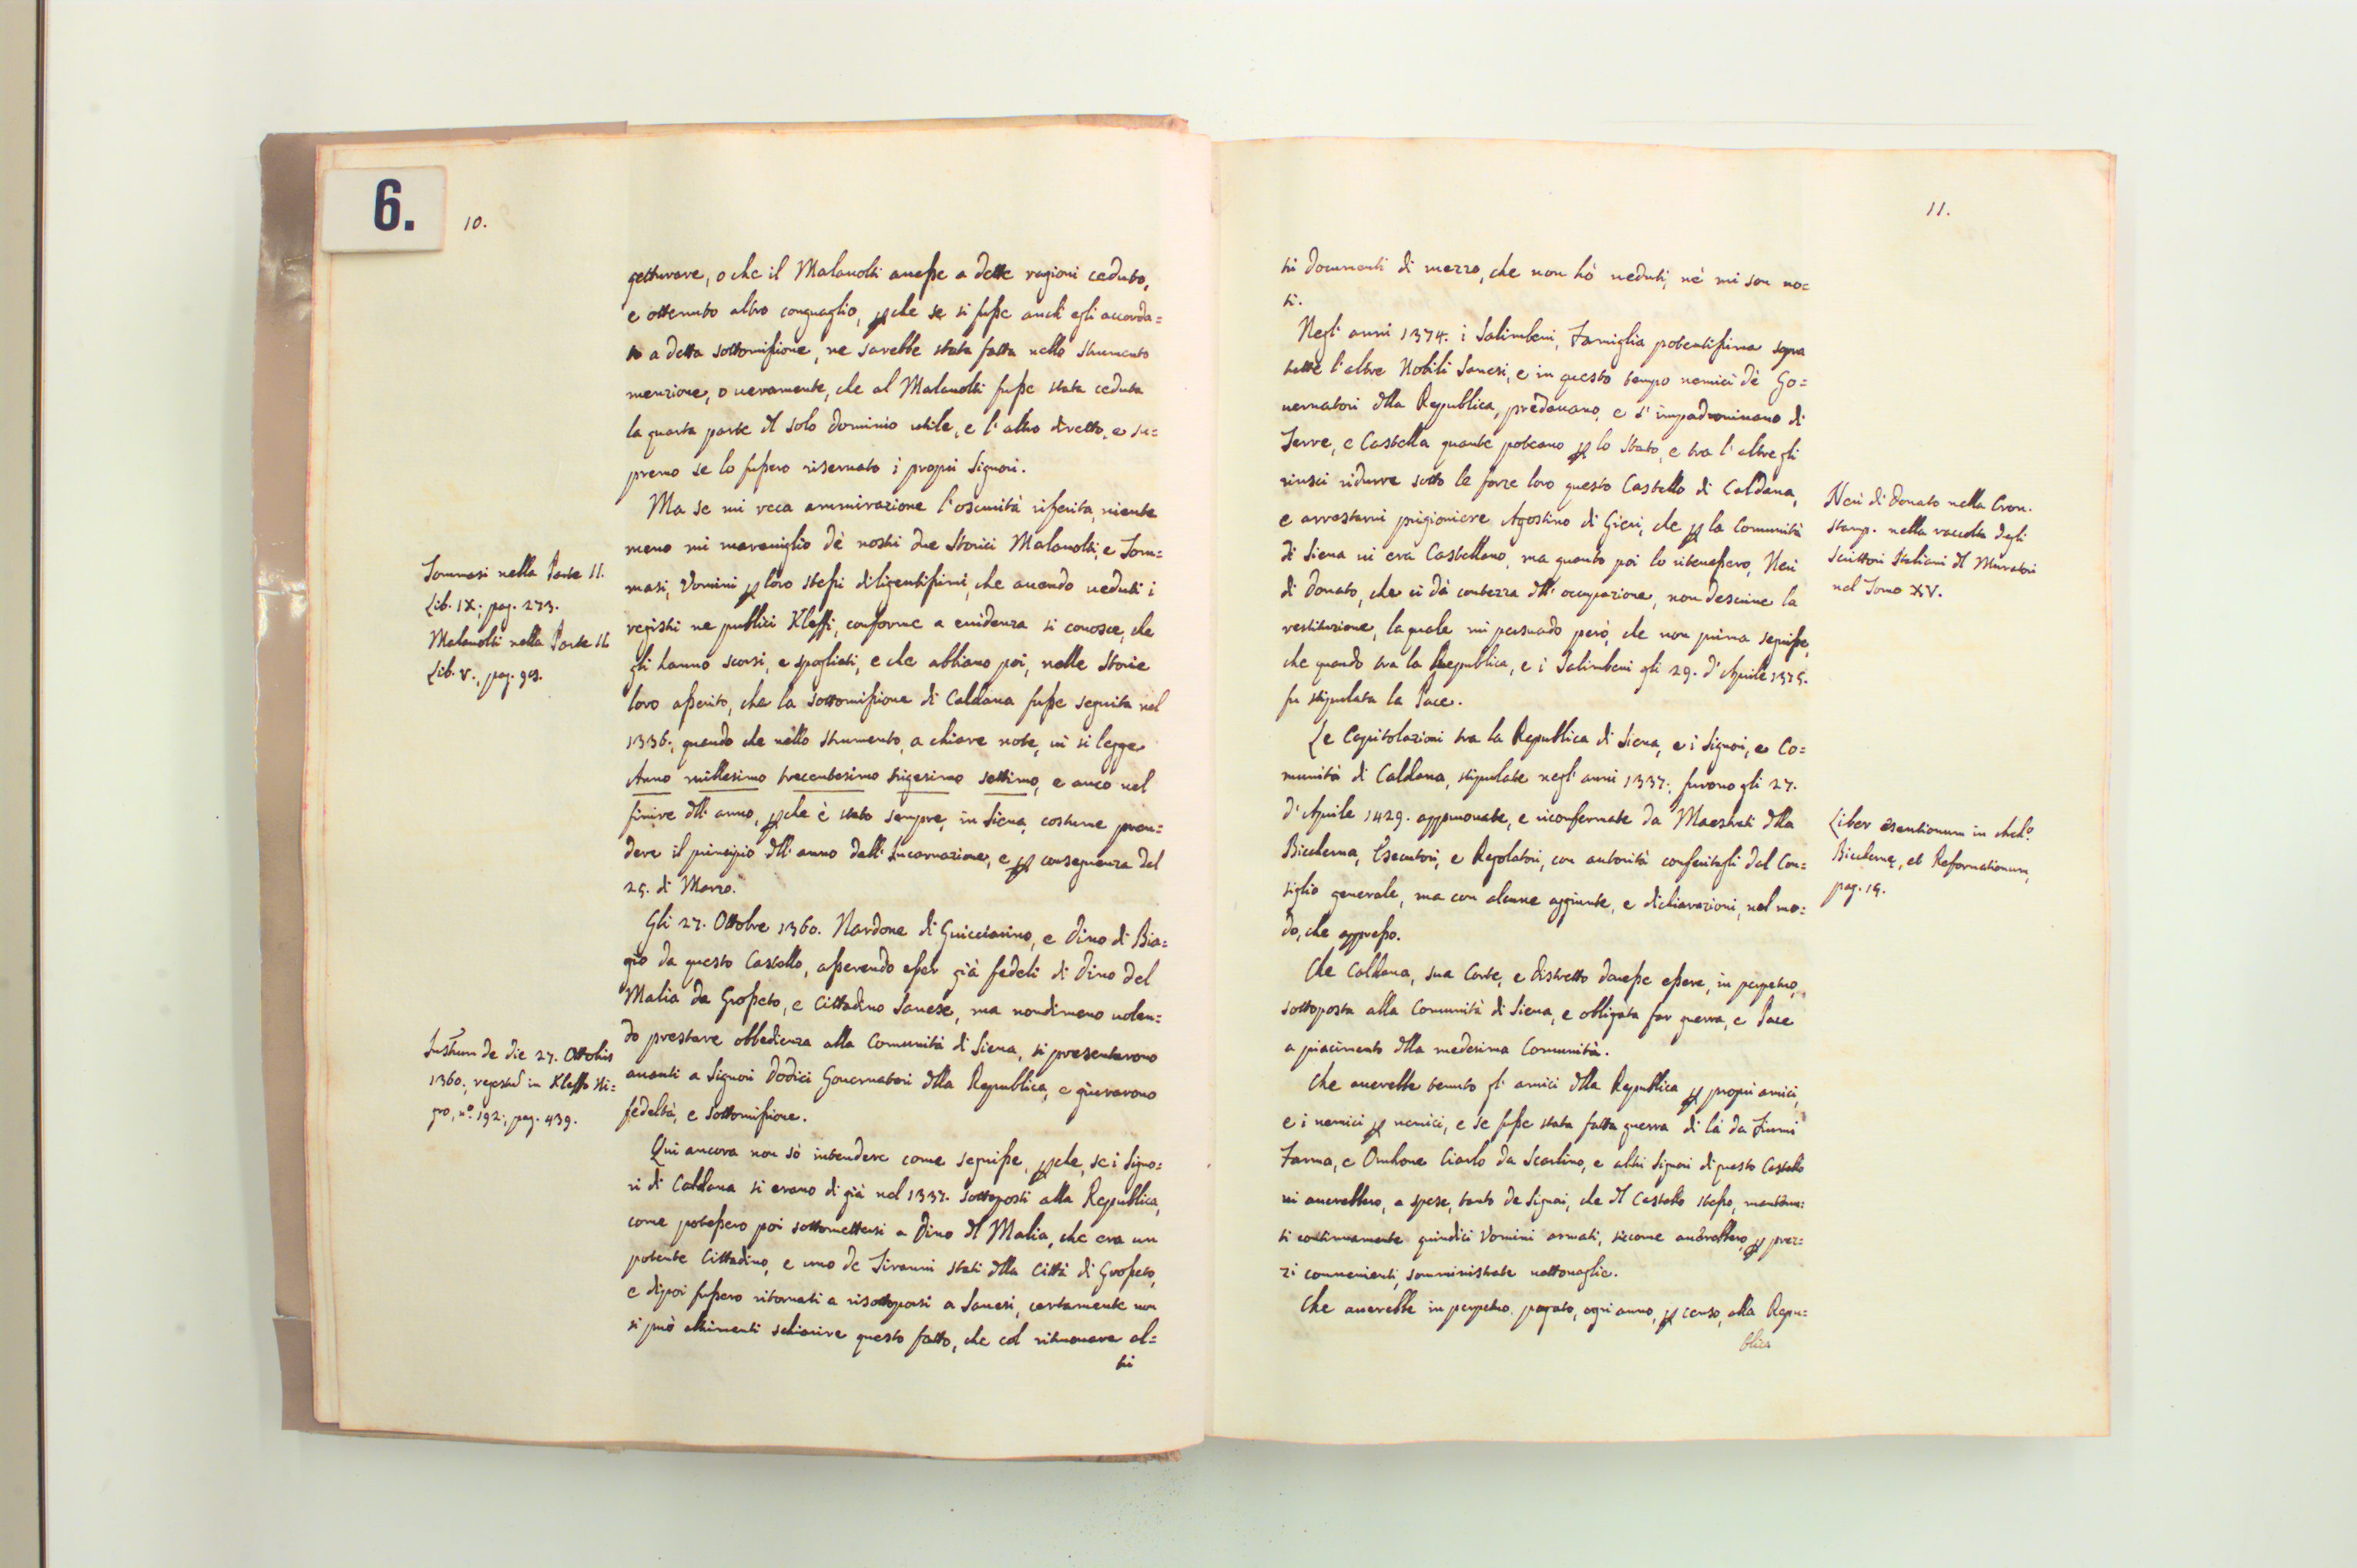 6.
10.
getturare, o che il Malauolti auesse a dette ragioni ceduto,
e ottenuto altro conguaglio, perche se si fusse anch' egli accorda=
to a detta sottomissione, ne sarebbe stata fatta nello strumento
menzione, o ueramente, che al Malauolti fusse stata ceduta
la quarta parte del solo dominio utile, e l' altro diretto, e su=
premo se lo fussero riseruato i proprii Signori.
Ma se mi reca ammirazione l' oscurità riferita, niente
meno mi marauiglio dè nostri due Storici Malauolti, e Tom=
masi, Vomini per loro stessi diligentissimi, che auendo ueduti i
registri ne publici Kleffi, conforme a euidenza si conosce, che
gli hanno scorsi, e spogliati, e che abbiano poi, nelle Storie
loro asserito, che la sottomissione di Caldana fusse seguita nel
1336., quando che nello strumento, a chiare note, ui si legge
Anno millesimo trecentesimo trigesimo settimo, e anco nel
finire dell' anno, perche è stato sempre, in Siena, costume pren=
dere il principio dell' anno dall' Incarnazione, e per conseguenza del
25. di Marzo.
Gli 27. Ottobre 1360. Nardone di Guicciarino, e Dino di Bia=
gio da questo Castello, asserendo esser già fedeli di Dino del
Malia da Grosseto, e Cittadino Sanese, ma nondimeno uolen=
do prestare obbedienza alla Comunità di Siena, si presentarono
auanti a Signori Dodici Gouernatori della Republica, e giurarono
fedeltà, e sottomissione.
Qui ancora non sò intendere come seguisse, perche, se i Signo=
ri di Caldana si erano di già nel 1337. sottoposti alla Republica,
come potessero poi sottomettersi a Dino del Malia, che era un
potente Cittadino, e uno de Tiranni stati della Città di Grosseto,
e dipoi fussero ritornati a risottoporsi a Sanesi, certamente non
si può altrimenti schiarire questo fatto, che col ritrouare al=
tri
Tommasi nella Parte II.
Lib. IX; pag. 273.
Malauolti nella Parte II.
Lib. V., pag.
Instrum de die 27. Ottobris
1360., in Kleffo Ni=
gro, nº. 192; pag. 439.
11.
tri documenti di mezzo, che non hò ueduti, nè mi son no=
ti.
Negl' anni 1374. i Salimbeni, Famiglia potentissima sopra
tutte l' altre Nobili Sanesi, e in questo tempo nemici dè Go=
uernatori della Republica, predauano, e s' impadroniuano di
Terre, e Castella quante poteano per lo Stato, e tra l' altre gli
riuscì ridurre sotto le forze loro questo Castello di Caldana,
e arrestarui prigioniere Agostino di Gieri, che per la Comunità
di Siena ui era Castellano, ma quanto poi lo ritenessero, Neri
di Donato, che ci dà contezza dell' occupazione, non descriue la
restituzione, la quale mi persuado però, che non prima seguisse,
che quando tra la Republica, e i Salimbeni gli 29. d' Aprile 1375.
fu stipulata la Pace.
Le Capitolazioni tra la Republica di Siena, e i Signori, e Co=
munità di Caldana, stipulate negl' anni 1337., furono gli 27.
d' Aprile 1429. approuate, e riconfermate da Maestrati della
Biccherna, Esecutori, e Regolatori, con autorità conferitagli dal Con=
siglio generale, ma con alcune aggiunte, e dichiarazioni, nel mo=
do, che appresso.
Che Caldana, sua Corte, e distretto douesse essere, in perpetuo,
sottoposta alla Comunità di Siena, e obligata far guerra, e Pace
a piacimento della medesima Comunità.
Che auerebbe tenuto gl' amici della Republica per proprii amici,
e i nemici per nemici, e se fusse stata fatta guerra di là da Fiumi
Farma, e Ombrone Ciarlo da Scarlino, e altri Signori di questo Castello
ui auerebbero, a spese, tanto de Signori, che del Castello stesso, mantenu=
ti continuamente quindici Vomini armati, siccome auerebbero, per prez=
zi conuenienti, somministrate uettouaglie.
Che auerebbe in perpetuo pagato, ogni anno, per censo, alla Repu=
blica
Neri di Donato nella Cron.
stamp. nella raccolta degli
Scrittori Italiani del Muratori
nel Tomo XV.
Liber esentionum in Arch.º
Biccherne, et Reformationum,
pag. 19.